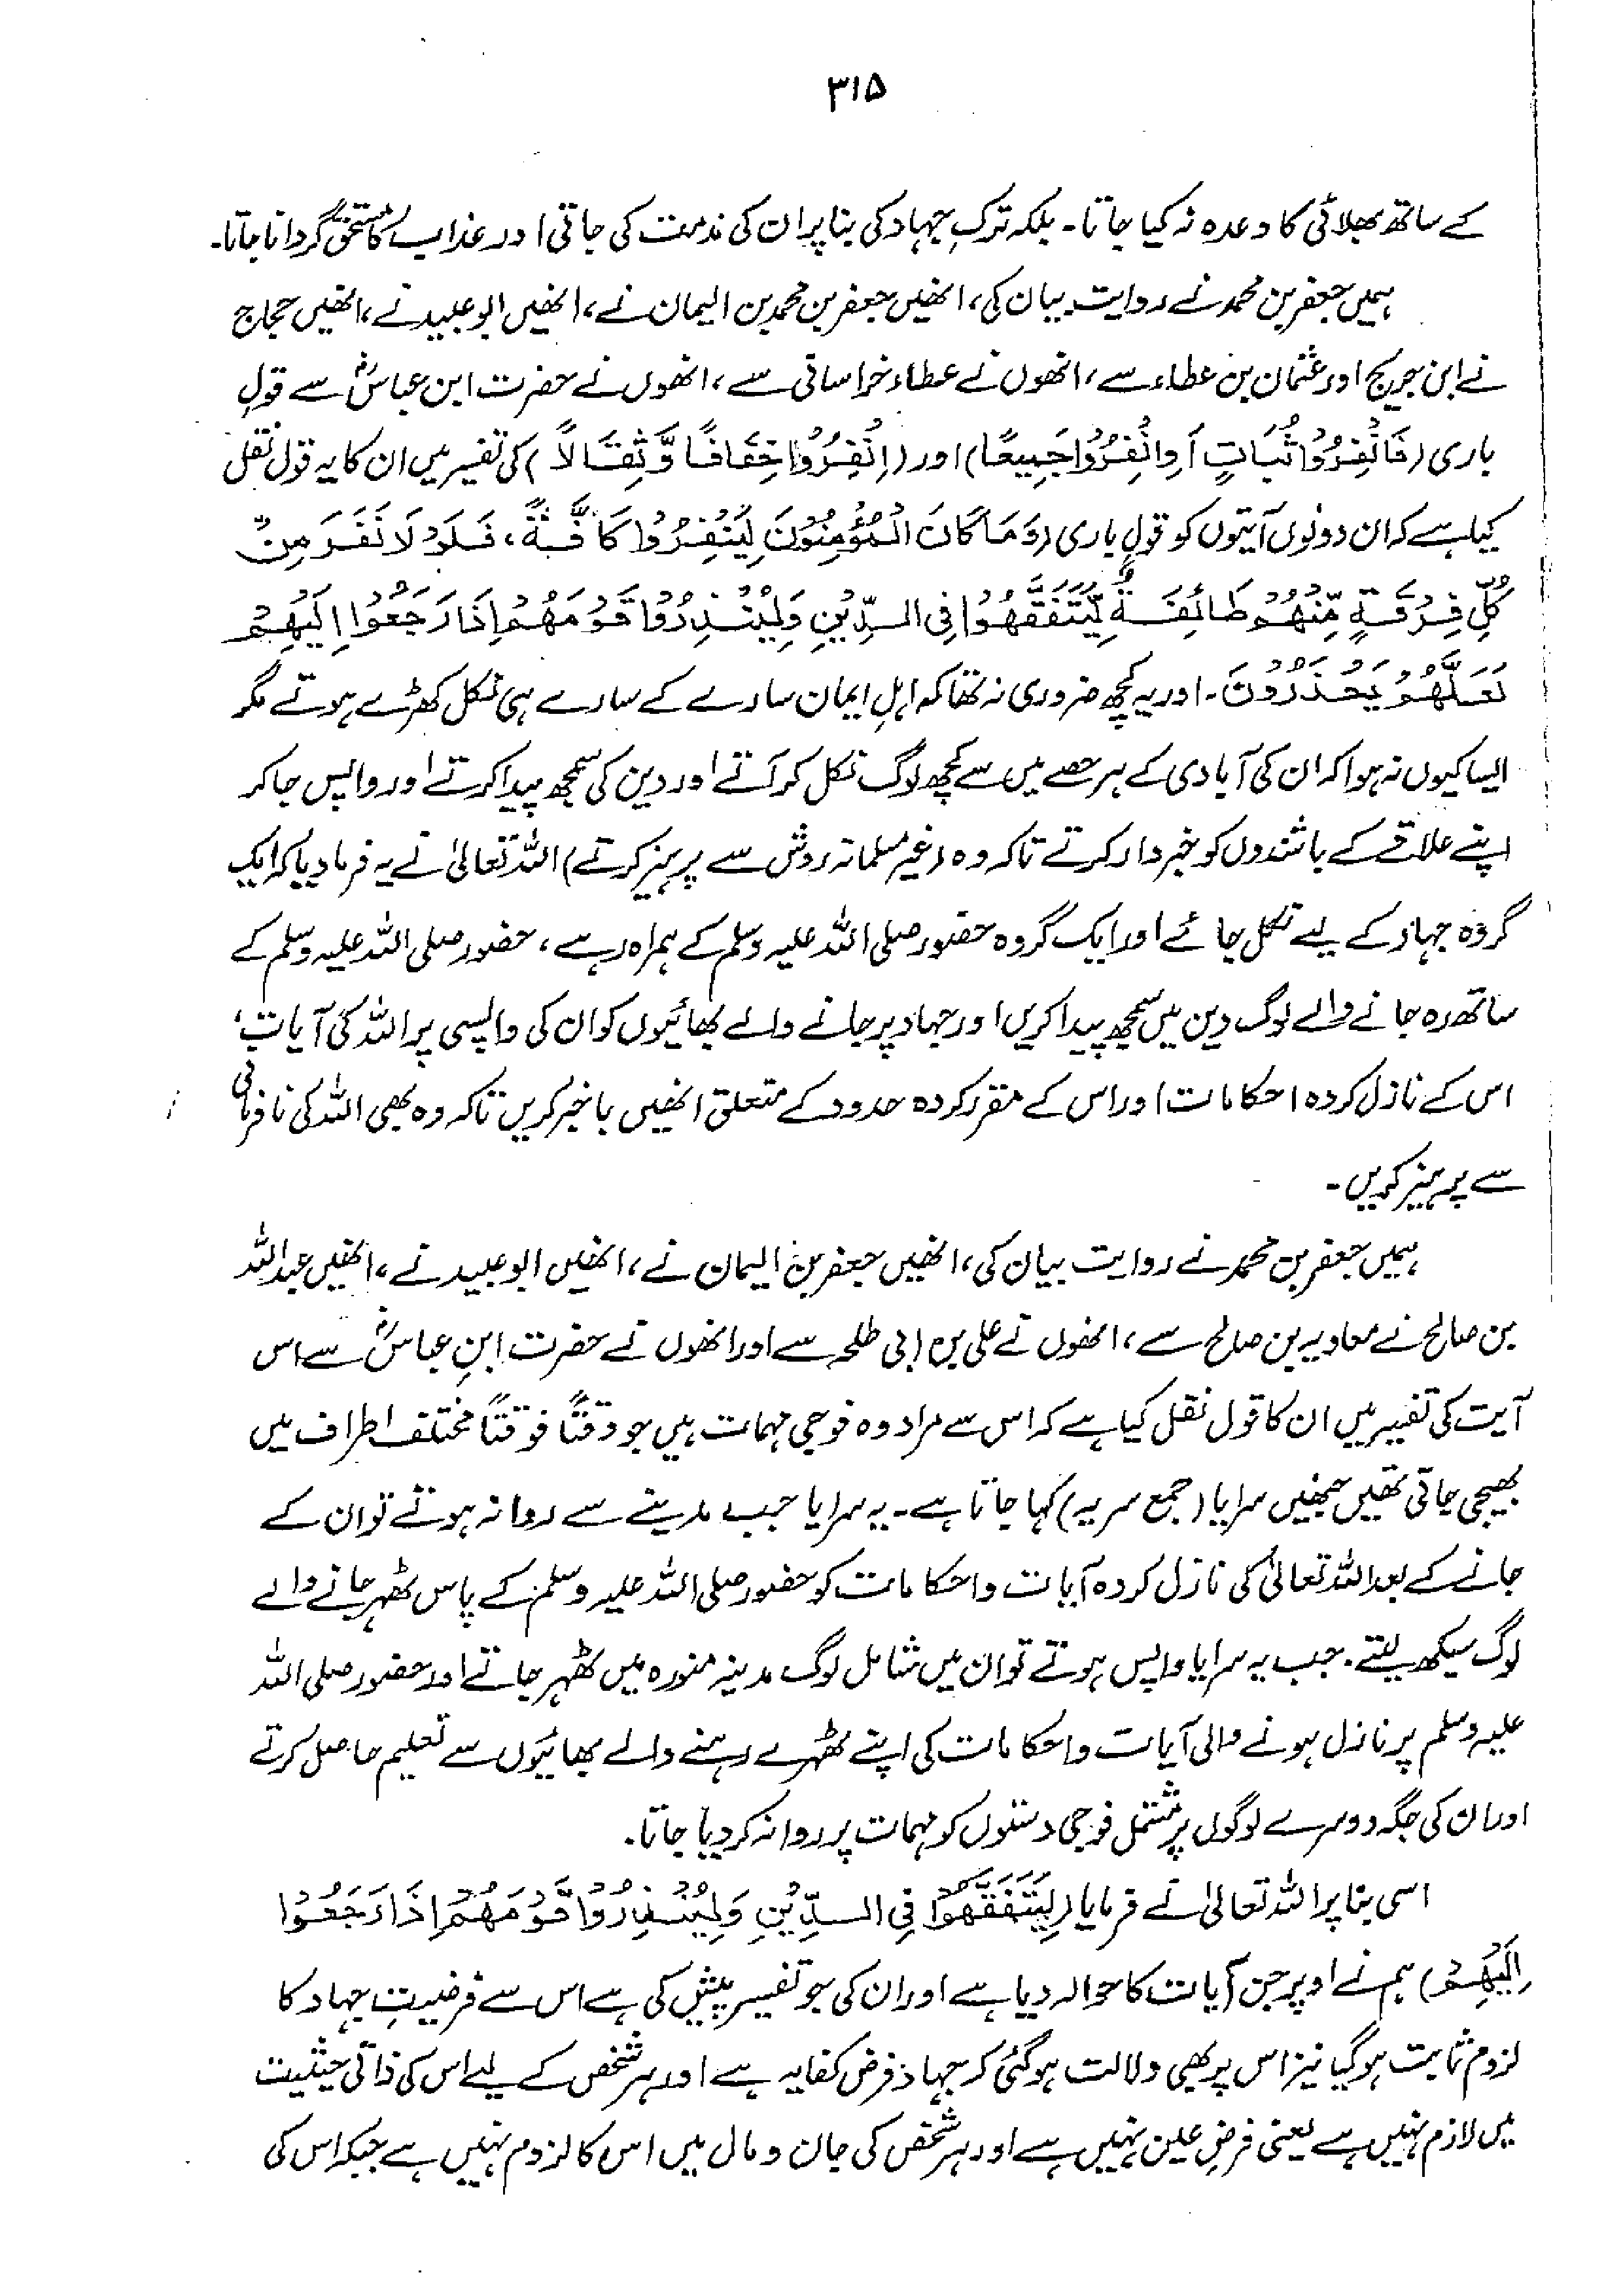 ۳۱۵
کے ساتھ بھلائی کا وعدہ نہ کیا جاتا۔ بلکہ ترکِ جہاد کی بنا پر ان کی مذمت کی جاتی اور عذاب کا مستحق گردانا جاتا۔
ہمیں جعفر بن محمد نے روایت بیان کی، انھیں جعفر بن محمد بن الیمان نے، انھیں ابو عبید نے، انھیں حجاج
نے ابن جریج اور عثمان بن عطاء سے، انھوں نے عطاء خراسانی سے، انھوں نے حضرت ابن عباسؓ سے قولِ
باری (فَانْفِرُوْا ثُبَاتٍ اَوِ انْفِرُوْا جَمِیعًا) اور (اِنْفِرُوْا خِفَافًا وَّثِقَالًا) کی تفسیر میں ان کا یہ قول نقل
کیا ہے کہ ان دونوں آیتوں کو قولِ باری (وَمَا کَانَ الْمُؤْمِنُوْنَ لِیَنْفِرُوْا کَافَّةً، فَلَوْلَا نَفَرَ مِنْ
کُلِّ فِرْقَةٍ مِّنْهُمْ طَائِفَةٌ لِّیَتَفَقَّهُوْا فِی الدِّیْنِ وَلِیُنْذِرُوْا قَوْمَهُمْ اِذَا رَجَعُوْا اِلَیْهِمْ
لَعَلَّهُمْ یَحْذَرُوْنَ۔ اور یہ کچھ ضروری نہ تھا کہ اہلِ ایمان سارے کے سارے ہی نکل کھڑے ہوتے مگر
ایسا کیوں نہ ہوا کہ ان کی آبادی کے ہر حصے میں سے کچھ لوگ نکل کر آتے اور دین کی سمجھ پیدا کرتے اور واپس جا کر
اپنے علاقے کے باشندوں کو خبردار کرتے تاکہ وہ (غیر مسلمانہ روش سے پرہیز کرتے) اللہ تعالیٰ نے یہ فرما دیا کہ ایک
گروہ جہاد کے لیے نکل جائے اور ایک گروہ حضور صلی اللہ علیہ وسلم کے ہمراہ رہے، حضور صلی اللہ علیہ وسلم کے
ساتھ رہ جانے والے لوگ دین میں سمجھ پیدا کریں اور جہاد پر جانے والے بھائیوں کو ان کی واپسی پر اللہ کی آیات،
اس کے نازل کردہ احکامات اور اس کے مقرر کردہ حدود کے متعلق انھیں باخبر کریں تاکہ وہ بھی اللہ کی نافرمانی
سے پرہیز کریں۔
ہمیں جعفر بن محمد نے روایت بیان کی، انھیں جعفر بن الیمان نے، انھیں ابو عبید نے، انھیں عبداللہ
بن صالح نے معاویہ بن صالح سے، انھوں نے علی بن ابی طلحہ سے اور انھوں نے حضرت ابنِ عباسؓ سے اس
آیت کی تفسیر میں ان کا قول نقل کیا ہے کہ اس سے مراد وہ فوجی مہمات ہیں جو وقتًا فوقتًا مختلف اطراف میں
بھیجی جاتی تھیں جنھیں سرایا (جمع سریہ) کہا جاتا ہے۔ یہ سرایا جب مدینے سے روانہ ہوتے تو ان کے
جانے کے بعد اللہ تعالیٰ کی نازل کردہ آیات و احکامات کو حضور صلی اللہ علیہ وسلم کے پاس ٹھہر جانے والے
لوگ سیکھ لیتے۔ جب یہ سرایا واپس ہوتے تو ان میں شامل لوگ مدینہ منورہ میں ٹھہر جاتے اور حضور صلی اللہ
علیہ وسلم پر نازل ہونے والی آیات و احکامات کی اپنے ٹھہرے رہنے والے بھائیوں سے تعلیم حاصل کرتے
اور ان کی جگہ دوسرے لوگوں پر مشتمل فوجی دستوں کو مہمات پر روانہ کر دیا جاتا۔
اسی بنا پر اللہ تعالیٰ نے فرمایا (لِیَتَفَقَّهُوْا فِی الدِّیْنِ وَلِیُنْذِرُوْا قَوْمَهُمْ اِذَا رَجَعُوْا
اِلَیْهِمْ) ہم نے اوپر جن آیات کا حوالہ دیا ہے اور ان کی جو تفسیر پیش کی ہے اس سے فرضیتِ جہاد کا
لزوم ثابت ہو گیا نیز اس پر بھی دلالت ہو گئی کہ جہاد فرض کفایہ ہے اور ہر شخص کے لیے اس کی ذاتی حیثیت
میں لازم نہیں ہے یعنی فرضِ عین نہیں ہے اور ہر شخص کی جان و مال میں اس کا لزوم نہیں ہے جبکہ اس کی